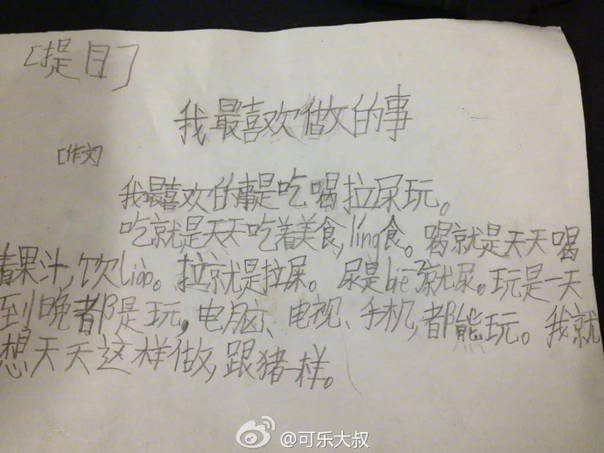 [提目]
我最喜欢做的事
[作文]
我最喜欢的事是吃喝拉尿玩。
吃就是天天吃着美食,ling食。喝就是天天喝
着果汁,饮liào。拉就是拉屎。尿是biē了就尿。玩是一天
到晚都是玩,电脑、电视、手机,都能玩。我就
想天天这样做,跟猪一样。
@可乐大叔